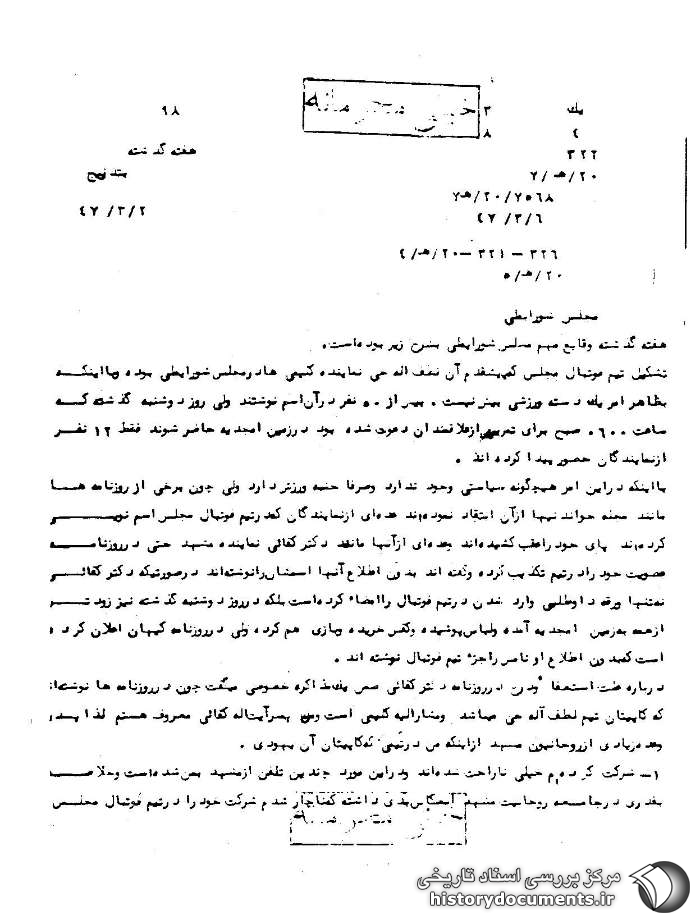 خیلی محرمانه
یك ۳ ۹۸
٤ ۸
۳۲۲ هفته گذشته
۲۰/هـ/۷ بتدریج
۷هـ/۲۰/۷۵٦۸
٤۷/۳/۲
٤۷/۳/٦
۳۲٦ – ۳۲۱ –۲۰/هـ/٤
۲۰/هـ/۵
مجلس شورایملی
هفته گذشته وقایع مهم مجلس شورایملی بشرح زیر بوده است.
تشکیل تیم فوتبال مجلس که پیشقدم آن لطف اله حی نماینده کلیمی ها در مجلس شورایملی بوده و بااینکه
بظاهر امر یك دسته ورزشی بیش نیست . بیش از ۵۰ نفر در آن اسم نوشتند ولی روز دوشنبه گذشته که
ساعت ٦۰۰ صبح برای تمرین از علاقمندان دعوت شده بود در زمین امجدیه حاضر شوند فقط ۱۲ نفر
از نمایندگان حضور پیدا کرده اند .
بااینکه در این امر هیچگونه سیاستی وجود ندارد و صرفا جنبه ورزش دارد ولی چون برخی از روزنامه ها
مانند مجله خواندنیها از آن انتقاد نموده اند عده ای از نمایندگان که در تیم فوتبال مجلس اسم نویسی
کرده اند پای خود را عقب کشیده اند و عده ای از آنها مانند دکتر کفائی نماینده مشهد حتی در روزنامه
عضویت خود را در تیم تکذیب کرده و گفته اند بدون اطلاع آنها اسمشان را نوشته اند در صورتیکه دکتر کفائی
نه تنها ورقه داوطلبی وارد شدن در تیم فوتبال را امضاء کرده است بلکه در روز دوشنبه گذشته نیز زودتر
از همه به زمین امجدیه آمده و لباس پوشیده و کفش خریده و بازی هم کرده ولی در روزنامه کیهان اعلان کرده
است که بدون اطلاع او نامش را جزء تیم فوتبال نوشته اند .
درباره علت استعفا دادن در روزنامه دکتر کفائی ضمن یك مذاکره خصوصی میگفت چون در روزنامه ها نوشته اند
که کاپیتان تیم لطف آله حی میباشد و مشارالیه کلیمی است و من پسر آیت اله کفائی معروف هستم لذا پدرم
و عده زیادی از روحانیون مشهد از اینکه من در تیمی که کاپیتان آن یهودی .
۱– شرکت کرده ام خیلی ناراحت شده اند و در این مورد چندین تلفن از مشهد بمن شده است و خلاصه
بقدری در جامعه روحانیت مشهد انعکاس بدی داشته که ناچار شدم شرکت خود را در تیم فوتبال مجلس
خیلی محرمانه
مرکز بررسی اسناد تاریخی
historydocuments.ir